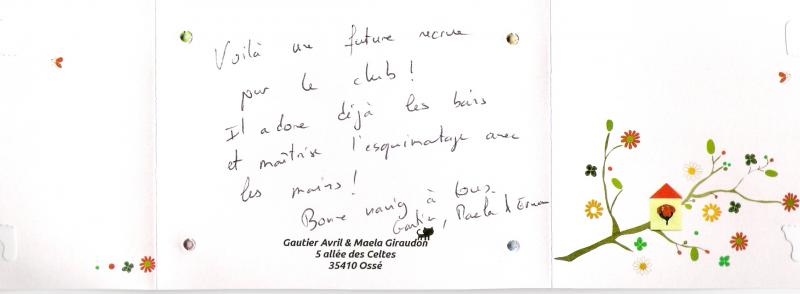 Voilà une future recrue
pour le club !
Il adore déjà les bains
et maîtrise l'esquimautage avec
les mains !
Bonne navig à tous.
Gautier, Maela & Ewen
Gautier Avril & Maela Giraudon
5 allée des Celtes
35410 Ossé